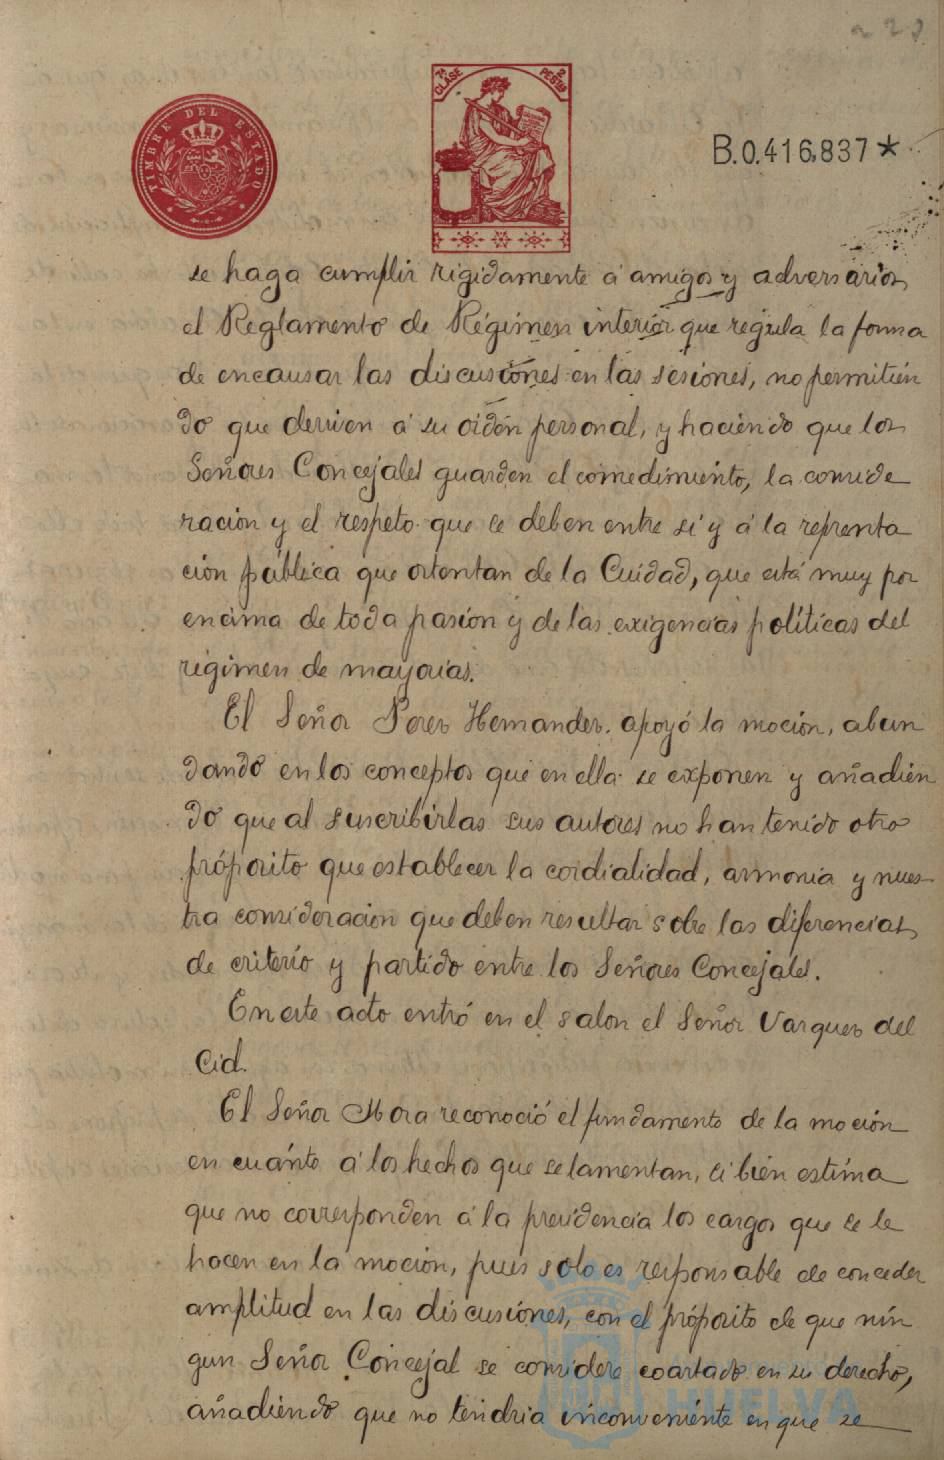 223
TIMBRE DEL ESTADO
7ª CLASE 2 PESTAS
B.0.416,837*
se haga cumplir rigidamente á amigos y adversarios
el Reglamento de Régimen interior que regula la forma
de encausar las discusiones en las sesiones, no permitien
do que deriven á su orden personal, y haciendo que los
Señores Concejales guarden el comedimiento, la conside
racion y el respeto que se deben entre sí y á la reprenta
ción pública que ostentan de la Cuidad, que está muy por
encima de toda pasión y de las exigencias políticas del
régimen de mayorias.
El Señor Perez Hernandez apoyó la moción, abun
dando en los conceptos que en ella se exponen y añadien
do que al suscribirlas sus autores no han tenido otro
própósito que establecer la cordialidad, armonia y nues-
tra consideracion que deben resultar sobre las diferencias
de criterio y partido entre los Señores Concejales.
En este acto entró en el salon el Señor Varquez del
Cid.
El Señor Mora reconoció el fundamento de la moción
en cuánto á los hechos que se lamentan, si bien estima
que no corresponden á la presidencia los cargos que se le
hacen en la moción, pues solo es responsable de conceder
amplitud en las discusiones, con el própósito de que nin
gun Señor Concejal se considere coartado en su derecho,
añadiendo que no tendria inconveniente en que se
HUELVA